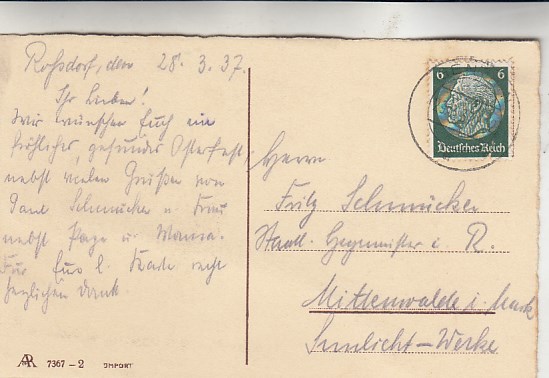 Roßdorf, den 28. 3. 37
Ihr Lieben!
Wir wünschen Euch ein
fröhliches, gesundes Osterfest,
nebst vielen Grüßen von
Schmücker u. Frau
nebst Papa u. Mama.
Für l. Karte recht
herzlichen Dank.
6 6
Deutsches Reich
Herrn
Fritz Schmücker
Staatl. Hegemeister i. R.
Mittenwalde i. Mark
Sunlicht-Werke
AR 7367-2 IMPORT